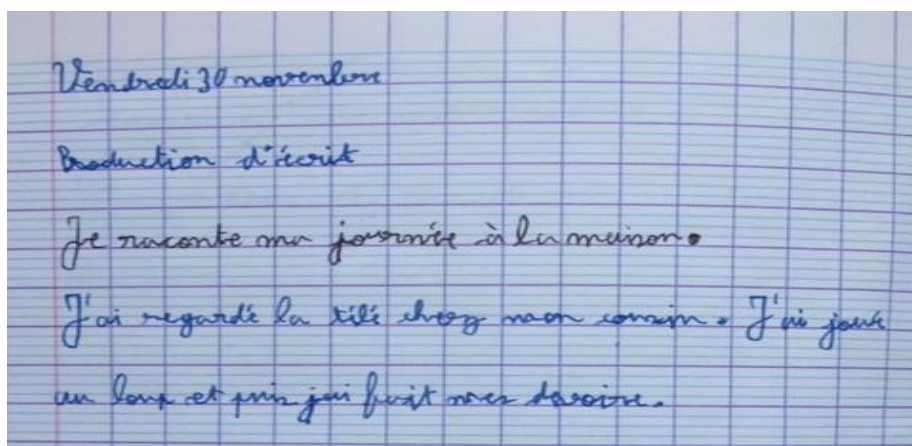 Vendredi 30 novembre
Production d'écrit
Je raconte ma journée à la maison.
J'ai regardé la télé chez mon cousin. J'ai joué
au loup et puis j'ai fait mes devoirs.